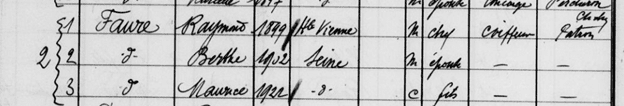 1 Faure Raymond 1899 Hte Vienne M chf coiffeur Patron
2 2 d° Berthe 1902 Seine M épouse — —
3 d° Maurice 1922 -d°- C fils — —